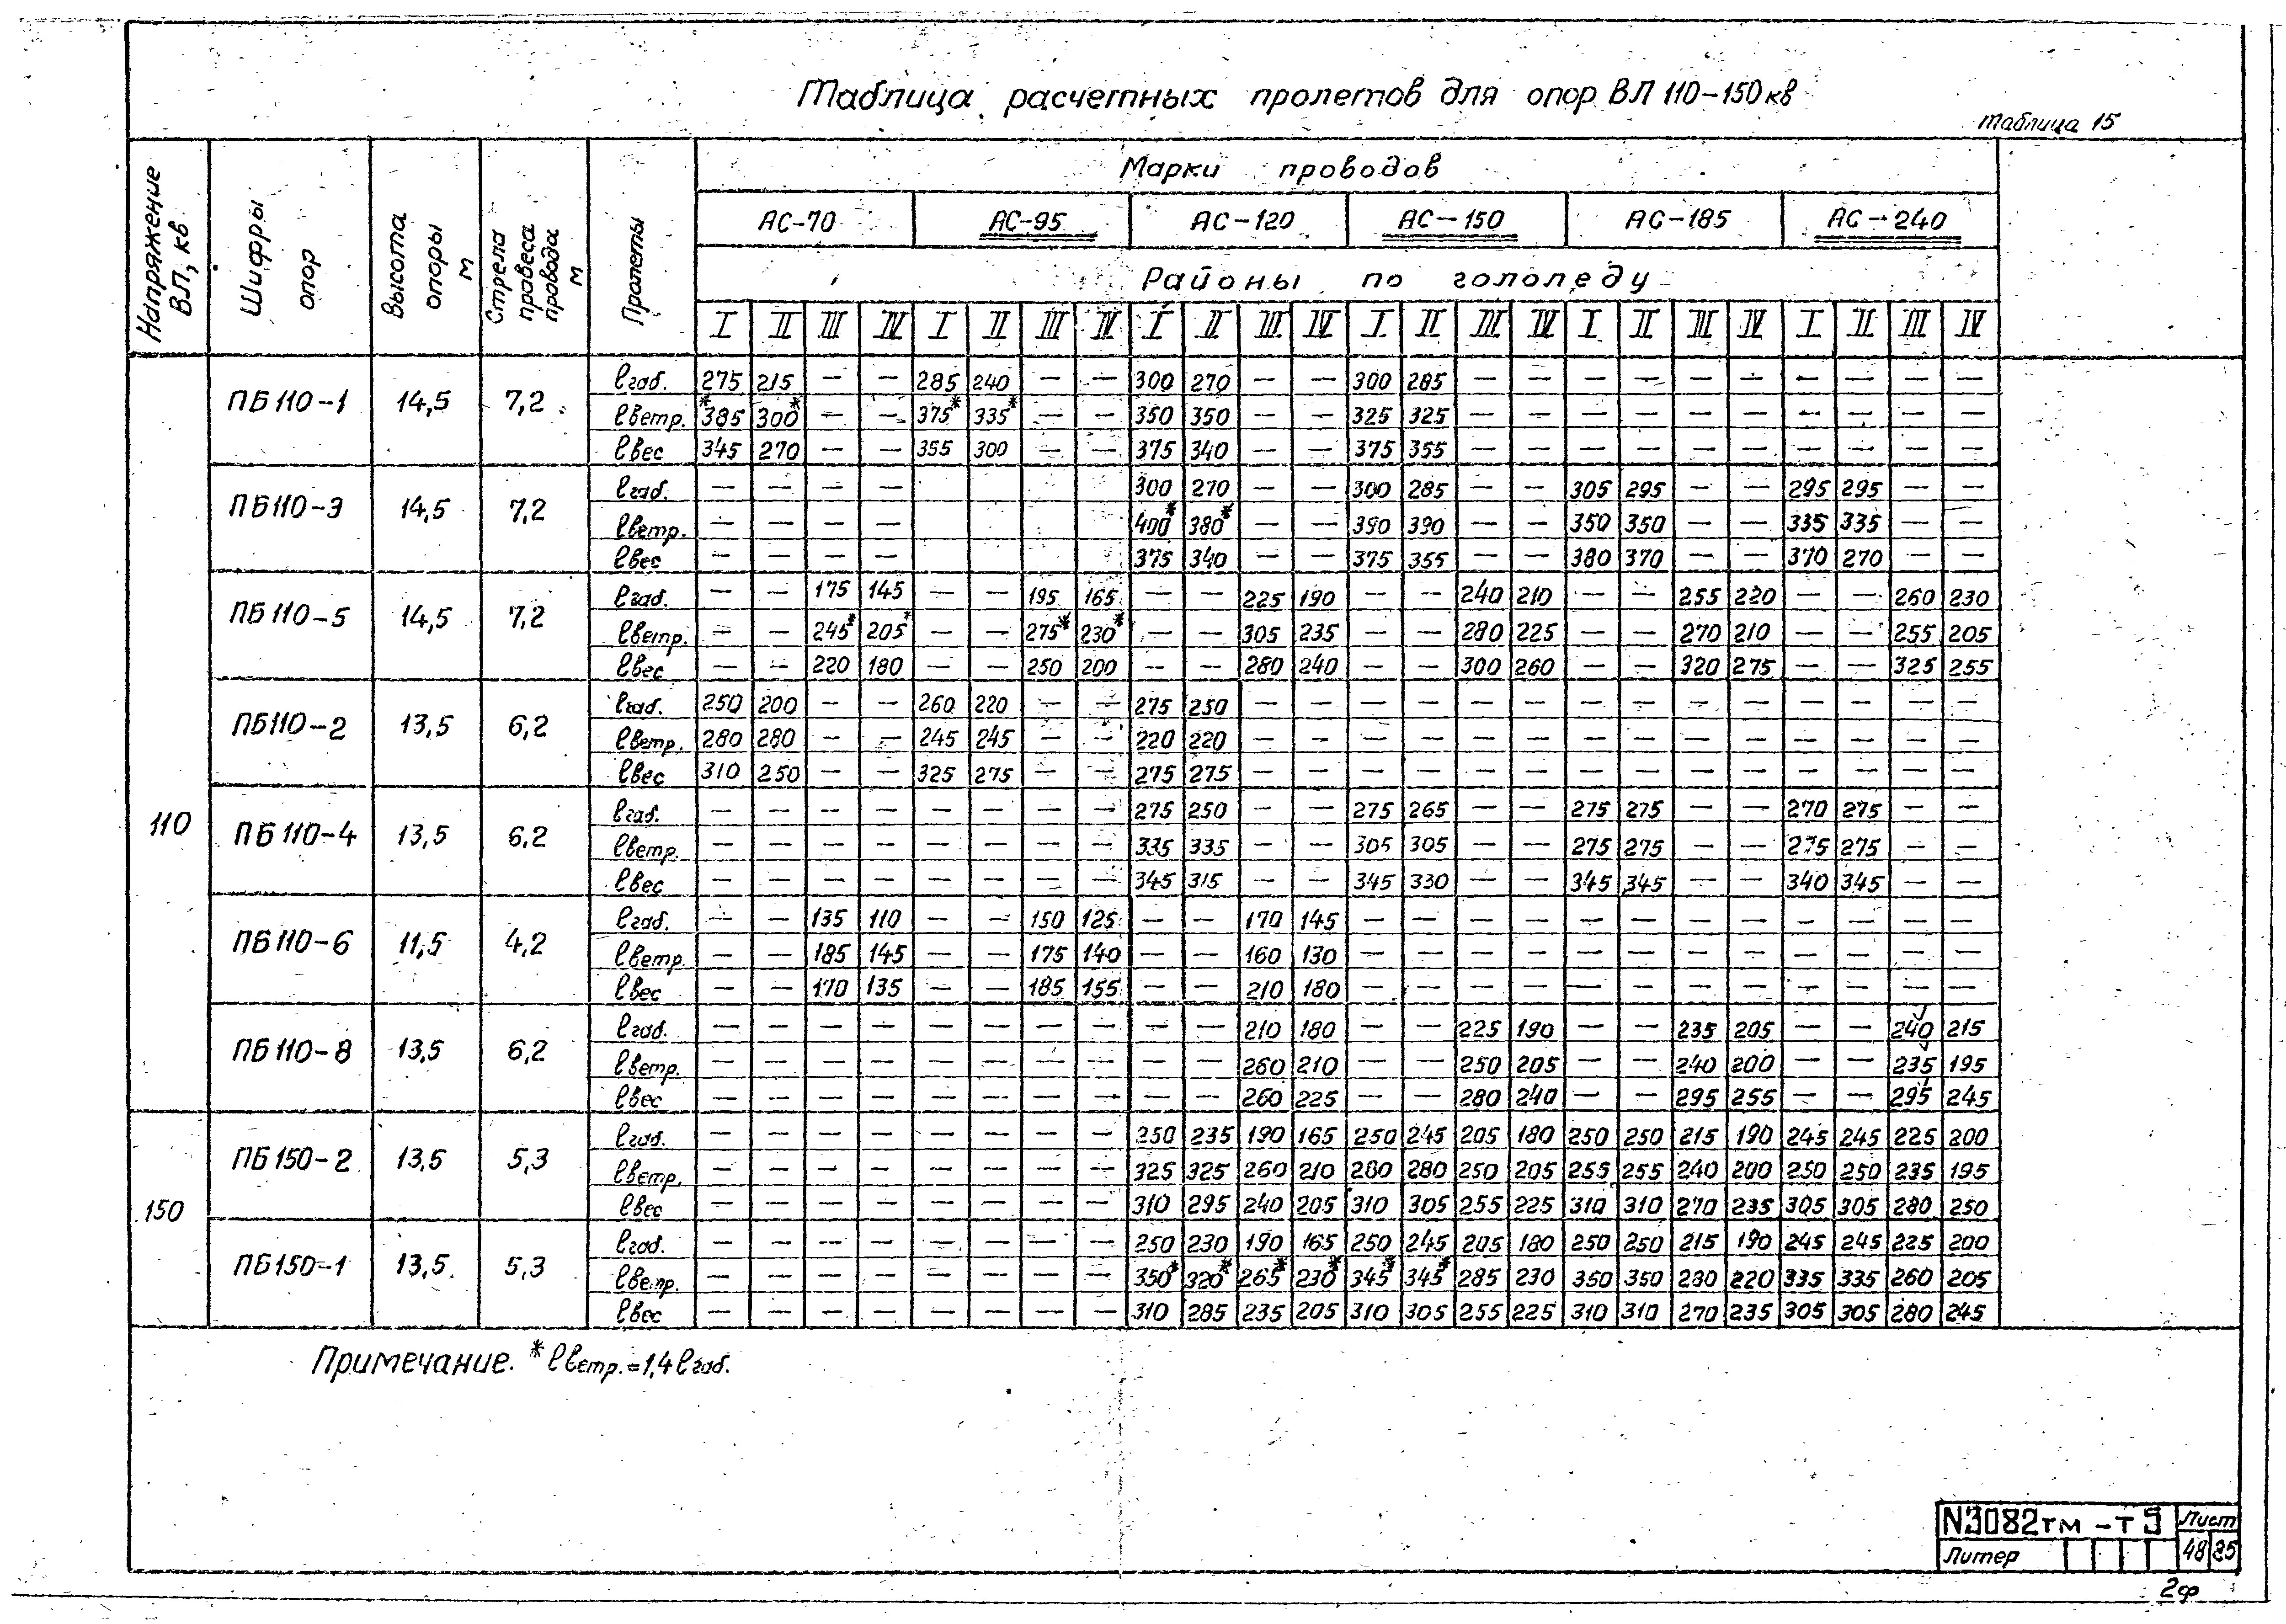 Таблица расчетных пролетов для опор ВЛ 110-150 кв
таблица 15
Напряжение ВЛ, кв
Шифры опор
Высота опоры м
Стрела провеса провода м
Пролеты
Марки проводов
АС-70 АС-95 АС-120 АС-150 АС-185 АС-240
Районы по гололеду
I II III IV I II III IV I II III IV I II III IV I II III IV I II III IV
110
ПБ110-1 14,5 7,2
lгаб. 275 215 — — 285 240 — — 300 270 — — 300 285 — — — — — — — — — —
lветр. *385 300* — — 375* 335* — — 350 350 — — 325 325 — — — — — — — — — —
lвес 345 270 — — 355 300 — — 375 340 — — 375 355 — — — — — — — — — —
ПБ110-3 14,5 7,2
lгаб. — — — — 300 270 — — 300 285 — — 305 295 — — 295 295 — —
lветр. — — — — 400* 380* — — 390 390 — — 350 350 — — 335 335 — —
lвес — — — — 375 340 — — 375 355 — — 380 370 — — 370 270 — —
ПБ110-5 14,5 7,2
lгаб. — — 175 145 — — 195 165 — — 225 190 — — 240 210 — — 255 220 — — 260 230
lветр. — — 245* 205* — — 275* 230* — — 305 235 — — 280 225 — — 270 210 — — 255 205
lвес — — 220 180 — — 250 200 — — 280 240 — — 300 260 — — 320 275 — — 325 255
ПБ110-2 13,5 6,2
lгаб. 250 200 — — 260 220 — — 275 250 — — — — — — — — — — — — — —
lветр. 280 280 — — 245 245 — — 220 220 — — — — — — — — — — — — — —
lвес 310 250 — — 325 275 — — 275 275 — — — — — — — — — — — — — —
ПБ110-4 13,5 6,2
lгаб. — — — — — — — — 275 250 — — 275 265 — — 275 275 — — 270 275 — —
lветр. — — — — — — — — 335 335 — — 305 305 — — 275 275 — — 275 275 — —
lвес — — — — — — — — 345 315 — — 345 330 — — 345 345 — — 340 345 — —
ПБ110-6 11,5 4,2
lгаб. — — 135 110 — — 150 125 — — 170 145 — — — — — — — — — — — —
lветр. — — 185 145 — — 175 140 — — 160 130 — — — — — — — — — — — —
lвес — — 170 135 — — 185 155 — — 210 180 — — — — — — — — — — — —
ПБ110-8 13,5 6,2
lгаб. — — — — — — — — — — 210 180 — — 225 190 — — 235 205 — — 240 215
lветр. — — — — — — — — — — 260 210 — — 250 205 — — 240 200 — — 235 195
lвес — — — — — — — — — — 260 225 — — 280 240 — — 295 255 — — 295 245
150
ПБ150-2 13,5 5,3
lгаб. — — — — — — — — 250 235 190 165 250 245 205 180 250 250 215 190 245 245 225 200
lветр. — — — — — — — — 325 325 260 210 280 280 250 205 255 255 240 200 250 250 235 195
lвес — — — — — — — — 310 295 240 205 310 305 255 225 310 310 270 235 305 305 280 250
ПБ150-1 13,5 5,3
lгаб. — — — — — — — — 250 230 190 165 250 245 205 180 250 250 215 190 245 245 225 200
lветр. — — — — — — — — 350* 320* 265* 230* 345* 345* 285 230 350 350 280 220 335 335 260 205
lвес — — — — — — — — 310 285 235 205 310 305 255 225 310 310 270 235 305 305 280 245
Примечание. *lветр.=1,4lгаб.
N3082тм-т5 Лист
Литер 48 25
2ф